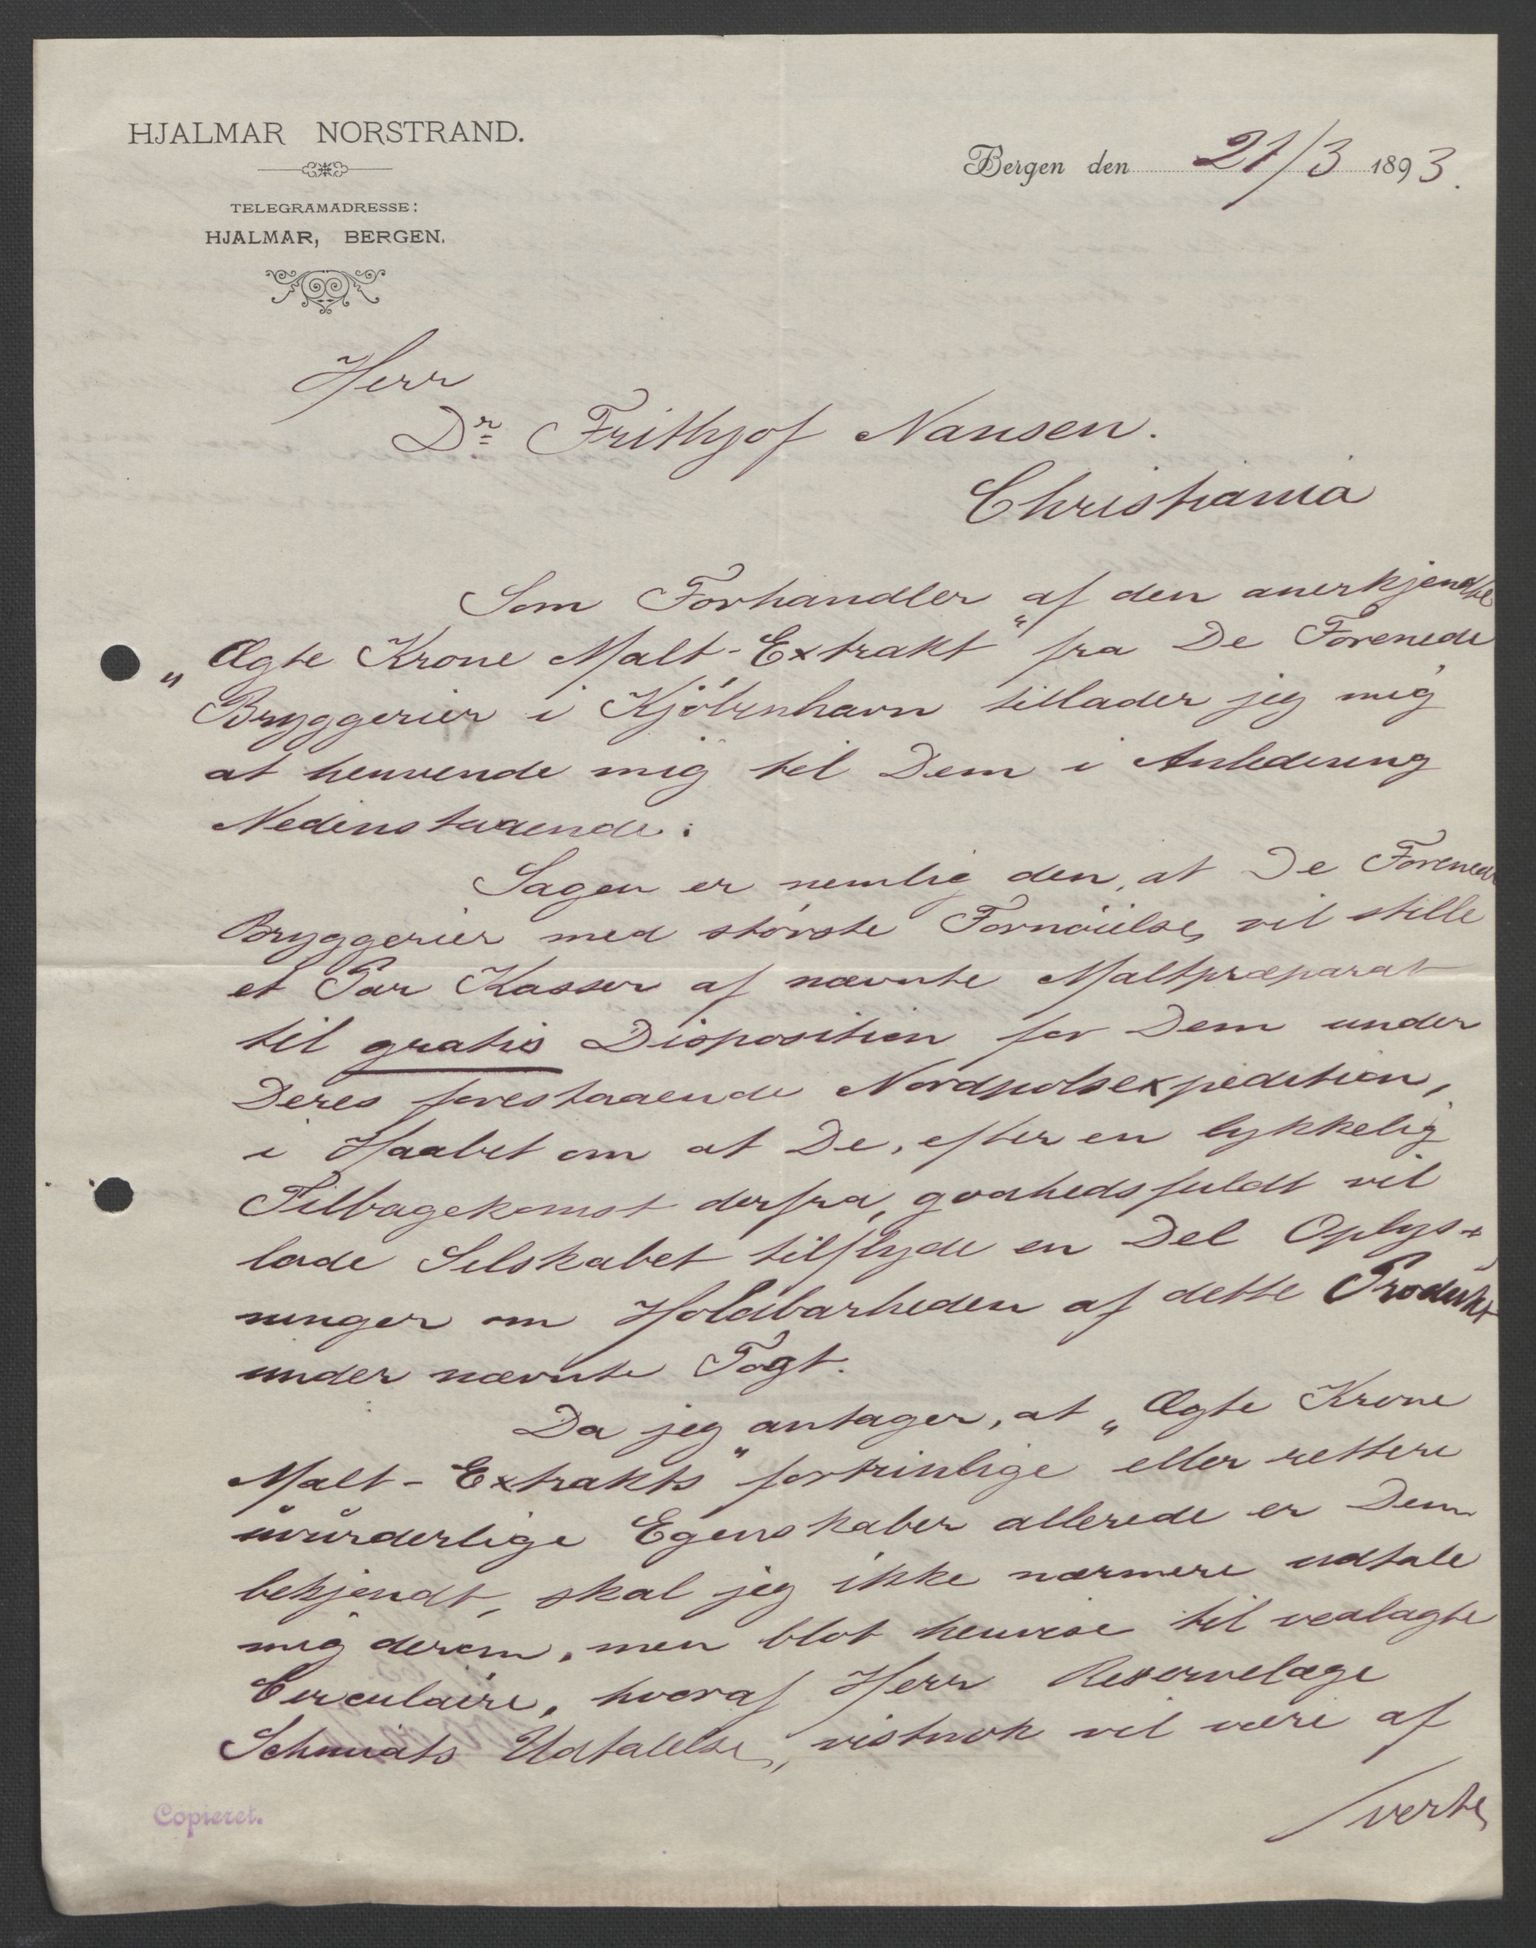 HJALMAR NORSTRAND.
TELEGRAMADRESSE:
HJALMAR, BERGEN.
Bergen den 21/3 1893.
Herr
Dr Frithjof Nansen.
Christiania
Som Forhandler af den anerkjendte
„Ægte Krone Malt-Extrakt“ fra De Forenede
Bryggerier i Kjöbenhavn tillader jeg mig
at henvende mig til Dem i Anledning
Nedenstaaende:
Sagen er nemlig den, at De Forenede
Bryggerier med største Fornöielse, vil stille
et Par Kasser af nævnte Maltpræparat
til gratis Disposition for Dem under
Deres forestaaende Nordpolsexpedition,
i Haabet om at De, efter en lykkelig
Tilbagekomst derfra, godhedsfuldt vil
lade Selskabet tilflyde en Del Oplys-
ninger om Holdbarheden af dette Produkt
under nævnte Togt.
Da jeg antager, at „Ægte Krone
Malt-Extrakts“ fortrinlige eller rettere
uvurderlige Egenskaber allerede er Dem
bekjendt, skal jeg ikke nærmere udtale
mig derom, men blot henvise til vedlagte
Circulaire, hvoraf Herr Reservelæge
Schmidts Udtalelse, vistnok vil være af
verte
Copieret.